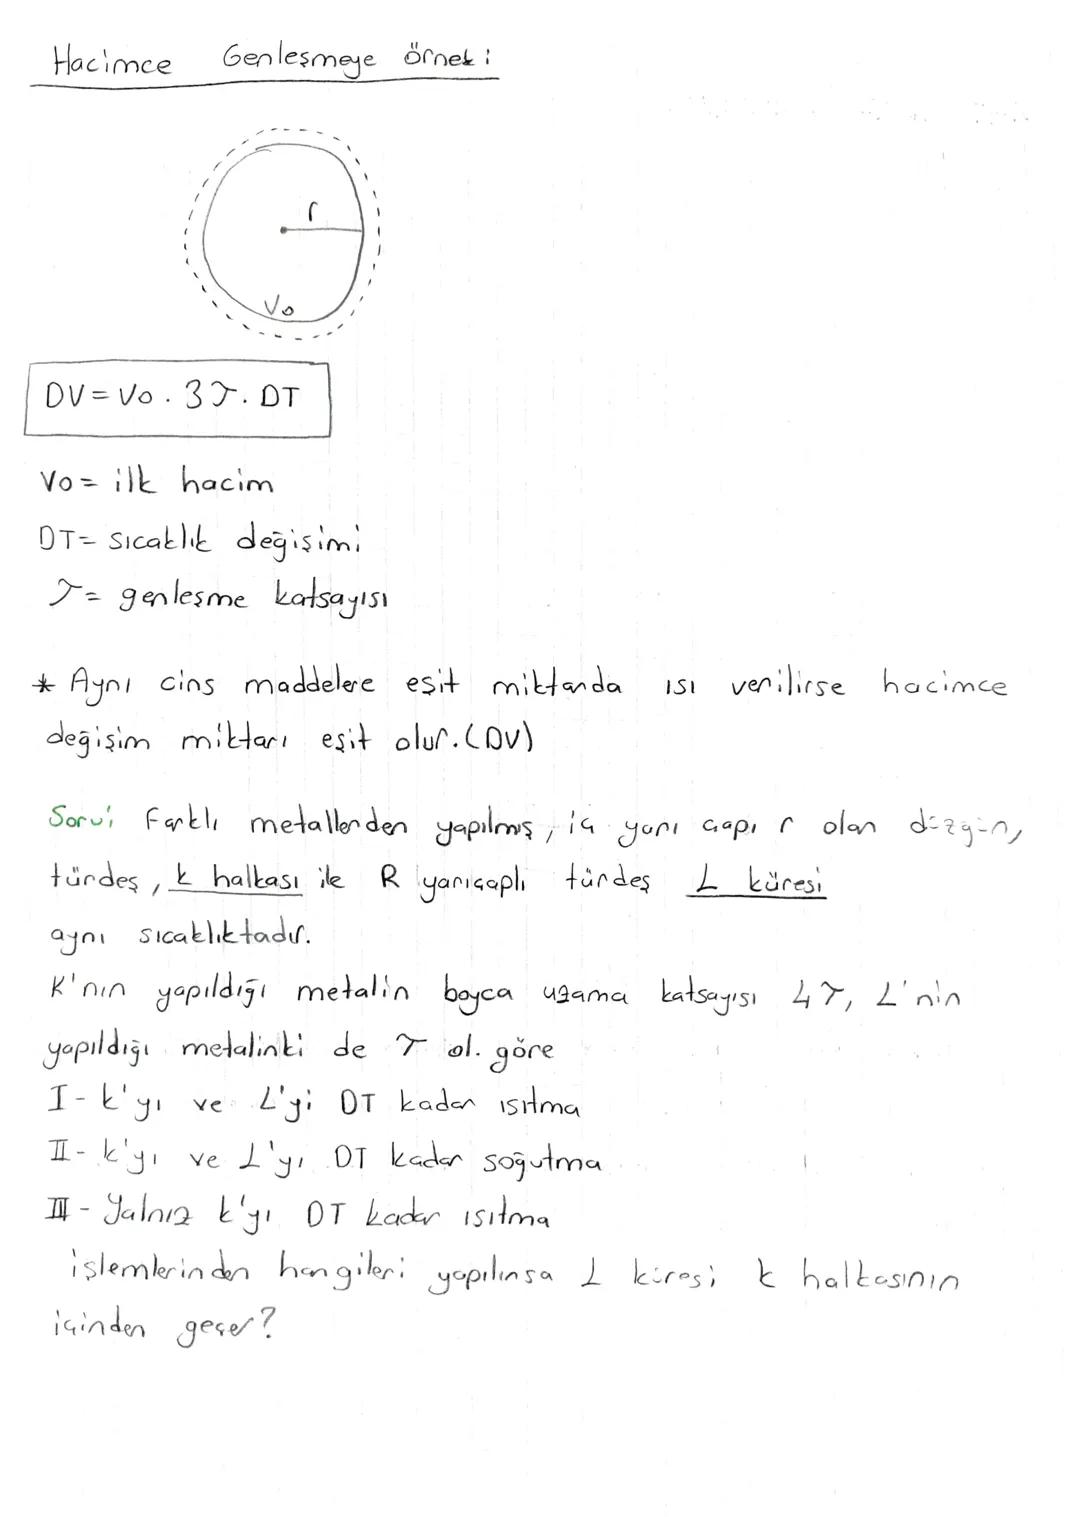 Hacimce Genleşmeye örnek:
r
Vo
DV = Vo . 3λ . DT
Vo = ilk hacim
DT = sıcaklık değişimi
λ = genleşme katsayısı
* Aynı cins maddelere eşit miktarda ısı verilirse hacimce
değişim miktarı eşit olur. (DV)
Soru: Farklı metallerden yapılmış, iç yarı çapı r olan düzgün,
türdeş, k halkası ile R yarıçaplı türdeş L küresi
aynı sıcaklıktadır.
K'nın yapıldığı metalin boyca uzama katsayısı 4λ, L'nin
yapıldığı metalinki de λ ol. göre
I - k'yı ve L'yi DT kadar ısıtma
II - k'yı ve L'yı DT kadar soğutma
III - Yalnız k'yı DT kadar ısıtma
işlemlerinden hangileri yapılınsa L küresi k halkasının
içinden geçer?